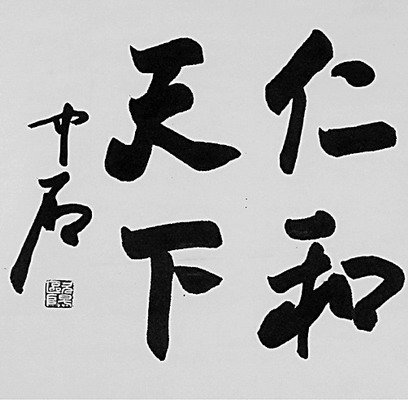 仁和
天下
中石